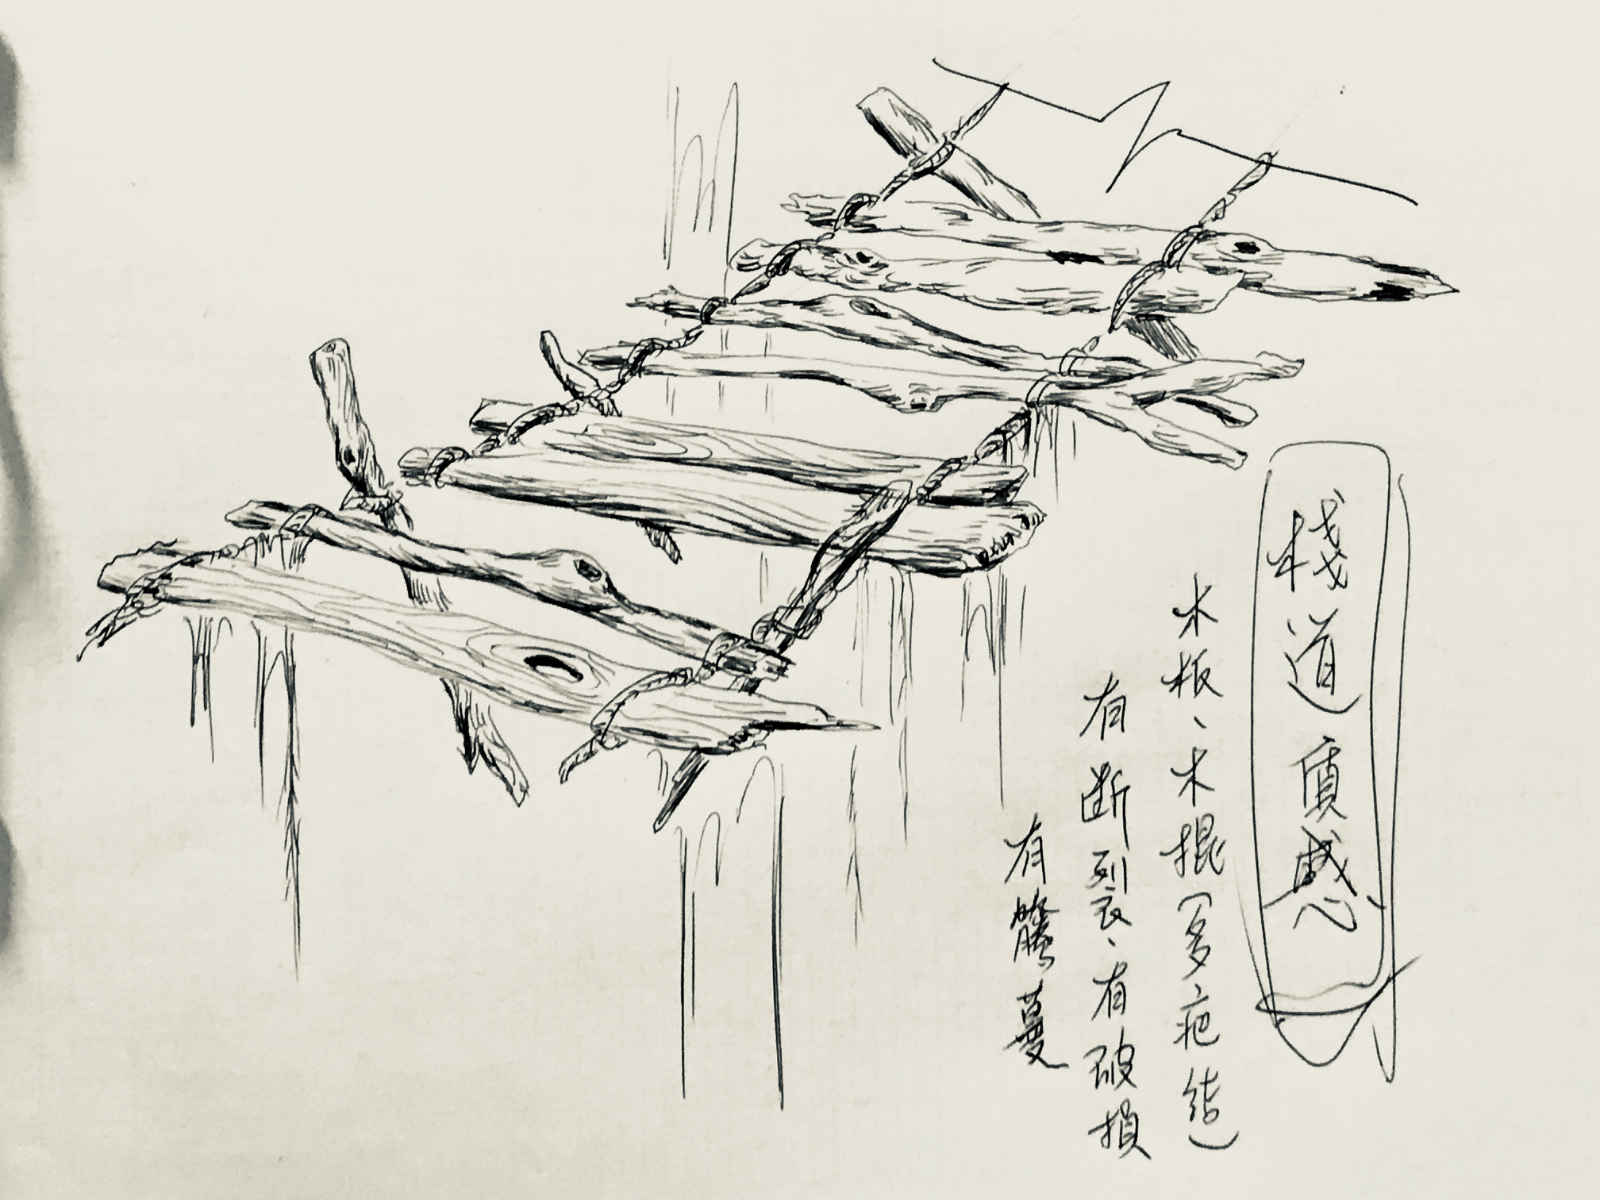 栈道质感
木板、木掍(多疤结)
有断裂、有破损
有藤蔓